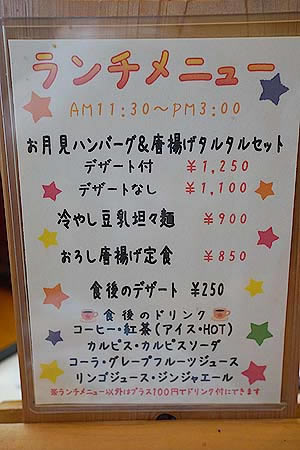 ランチメニュー
AM11:30～PM3:00
お月見ハンバーグ&唐揚げタルタルセット
デザート付 ¥1,250
デザートなし ¥1,100
冷やし豆乳坦々麺 ¥900
おろし唐揚げ定食 ¥850
食後のデザート ¥250
食後のドリンク
コーヒー・紅茶(アイス・HOT)
カルピス・カルピスソーダ
コーラ・グレープフルーツジュース
リンゴジュース・ジンジャエール
※ランチメニュー以外はプラス100円でドリンク付にできます